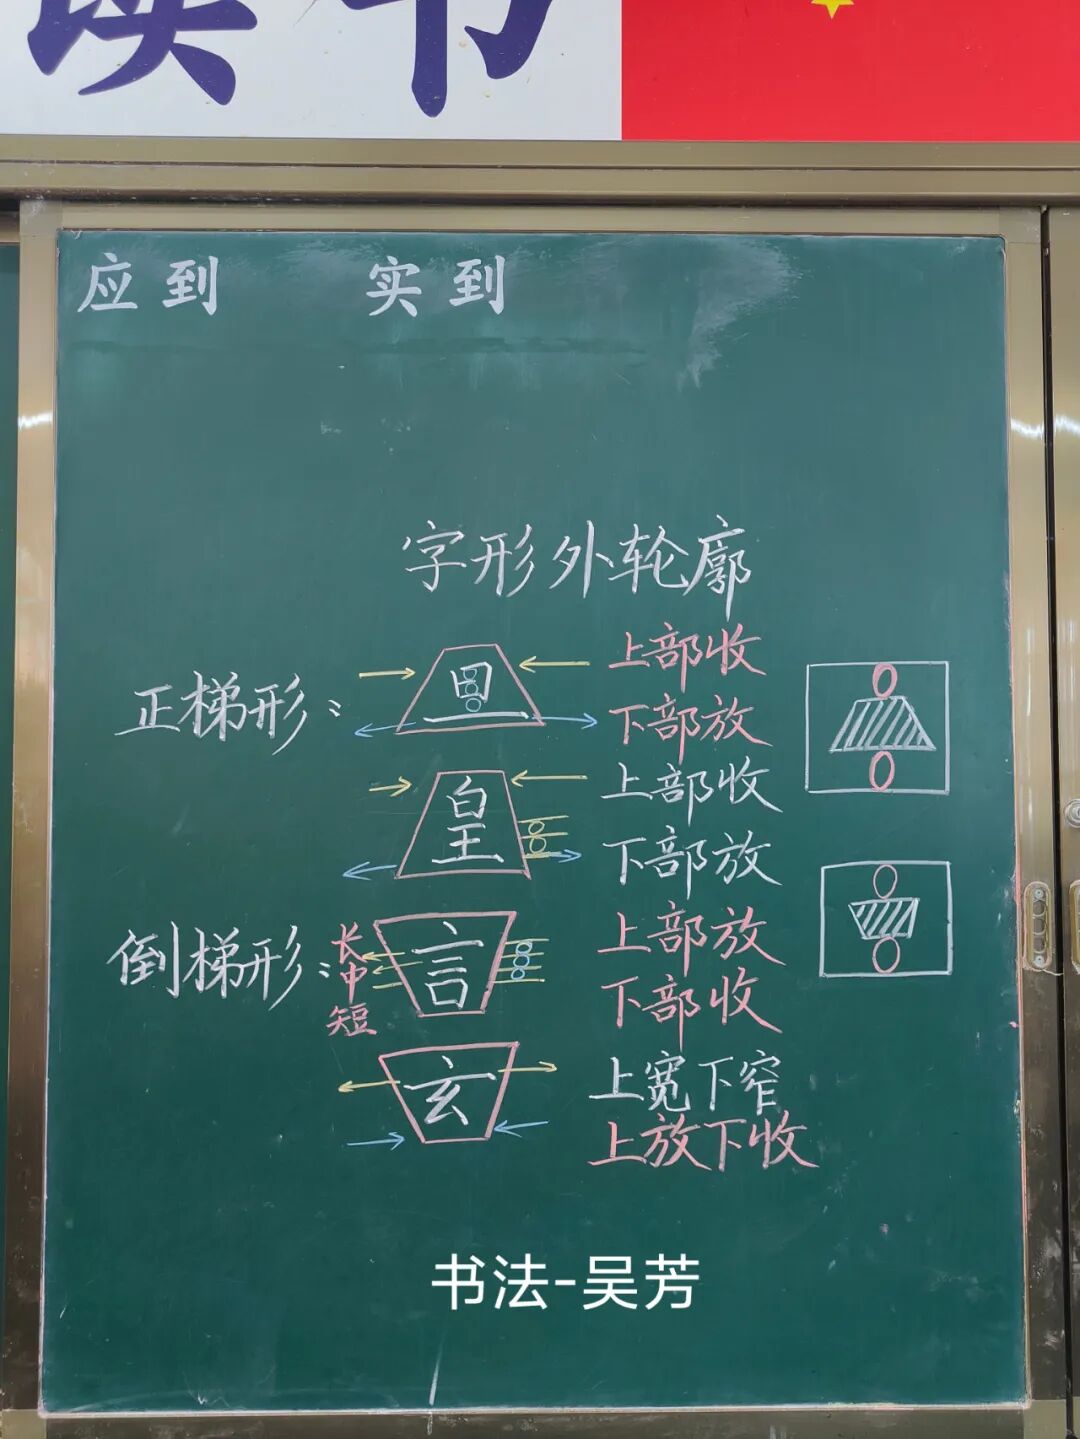 读书
应到 实到
字形外轮廓
正梯形：
旦
上部收
下部放
皇
上部收
下部放
倒梯形：
长中短
言
上部放
下部收
玄
上宽下窄
上放下收
书法-吴芳